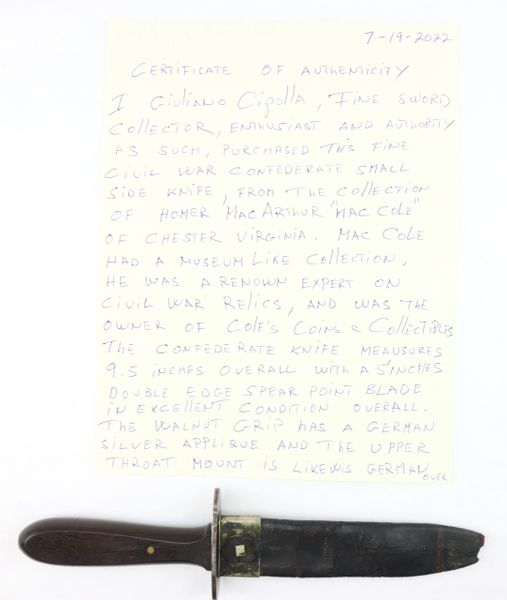 7-19-2022
CERTIFICATE OF AUTHENTICITY
I Giuliano Cipolla, FINE SWORD
COllECTOR, ENTHUSIAST AND AUTHORITY
AS SUCH, PURCHASED THIS FINE
CIVIL WAR CONFEDERATE SMALL
SIDE KNIFE, FROM THE COllECTION
OF HOMER MACARTHUR "MAC COLE"
OF CHESTER VIRGINIA. MAC COLE
HAD A MUSEUM LIKE COLLECTION,
HE WAS A RENOWN EXPERT ON
CIVIL WAR RELICS, AND WAS THE
OWNER OF COLE'S COINS & COLLECTIBLES
THE CONFEDERATE KNIFE MEAUSURES
9.5 INCHES OVERALL WITH A 5"INCHES
DOUBLE EDGE SPEAR POINT BLADE
IN EXCELLENT CONDITION OVERALL.
THE WALNUT GRIP HAS A GERMAN
SILVER APPLIQUE AND THE UPPER
THROAT MOUNT IS LIKEWIS GERMAN
OVER